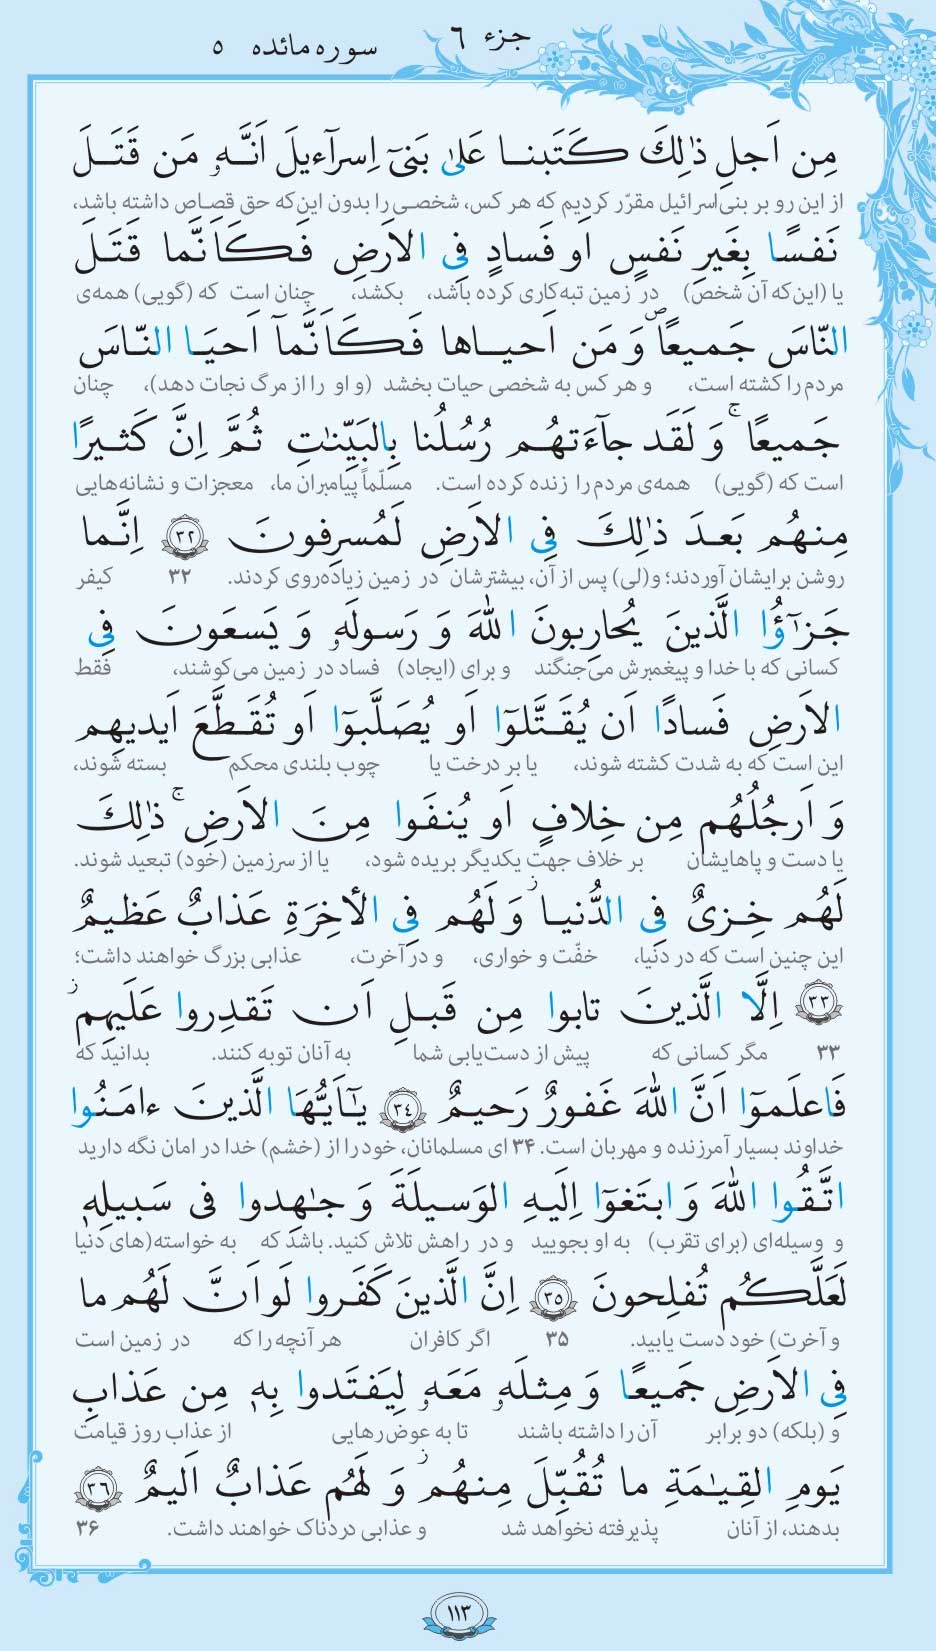 جزء ۶ سوره مائده ۵
مِن اَجلِ ذٰلِكَ كَتَبنا عَلىٰ بَنىٓ اِسرآءيلَ اَنَّهٗ مَن قَتَلَ
از این رو بر بنی‌اسرائیل مقرّر کردیم که هر کس، شخصی را بدون این‌که حق قصاص داشته باشد،
نَفسًا بِغَيرِ نَفسٍ اَو فَسادٍ فِى الاَرضِ فَكَاَنَّما قَتَلَ
یا (این‌که آن شخص) در زمین تبه‌کاری کرده باشد، بکشد، چنان است که (گویی) همه‌ی
النّاسَ جَميعًاۖ وَ مَن اَحياها فَكَاَنَّمآ اَحيَا النّاسَ
مردم را کشته است، و هر کس به شخصی حیات بخشد (و او را از مرگ نجات دهد)، چنان
جَميعًاۚ وَ لَقَد جآءَتهُم رُسُلُنا بِالبَيِّنٰتِ ثُمَّ اِنَّ كَثيرًا
است که (گویی) همه‌ی مردم را زنده کرده است. مسلّماً پیامبران ما، معجزات و نشانه‌هایی
مِنهُم بَعدَ ذٰلِكَ فِى الاَرضِ لَمُسرِفونَ ۳۲ اِنَّما
روشن برایشان آوردند؛ و(لی) پس از آن، بیشترشان در زمین زیاده‌روی کردند. ۳۲ کیفر
جَزٰٓؤُا الَّذينَ يُحارِبونَ اللّٰهَ وَ رَسولَهٗ وَ يَسعَونَ فِى
کسانی که با خدا و پیغمبرش می‌جنگند و برای (ایجاد) فساد در زمین می‌کوشند، فقط
الاَرضِ فَسادًا اَن يُقَتَّلوٓا اَو يُصَلَّبوٓا اَو تُقَطَّعَ اَيديهِم
این است که به شدت کشته شوند، یا بر درخت یا چوب بلندی محکم بسته شوند،
وَ اَرجُلُهُم مِن خِلافٍ اَو يُنفَوا مِنَ الاَرضِۚ ذٰلِكَ
یا دست و پاهایشان بر خلاف جهت یکدیگر بریده شود، یا از سرزمین (خود) تبعید شوند.
لَهُم خِزىٌ فِى الدُّنياۖ وَ لَهُم فِى الأخِرَةِ عَذابٌ عَظيمٌ
این چنین است که در دنیا، خفّت و خواری، و در آخرت، عذابی بزرگ خواهند داشت؛
۳۳ اِلَّا الَّذينَ تابوا مِن قَبلِ اَن تَقدِروا عَلَيهِم
۳۳ مگر کسانی که پیش از دست‌یابی شما به آنان توبه کنند. بدانید که
فَاعلَموٓا اَنَّ اللّٰهَ غَفورٌ رَحيمٌ ۳۴ يٰٓاَيُّهَا الَّذينَ ءامَنُوا
خداوند بسیار آمرزنده و مهربان است. ۳۴ ای مسلمانان، خود را از (خشم) خدا در امان نگه دارید
اتَّقُوا اللّٰهَ وَ ابتَغوٓا اِلَيهِ الوَسيلَةَ وَ جٰهِدوا فى سَبيلِهٖ
و وسیله‌ای (برای تقرب) به او بجویید و در راهش تلاش کنید. باشد که به خواسته(های دنیا
لَعَلَّكُم تُفلِحونَ ۳۵ اِنَّ الَّذينَ كَفَروا لَو اَنَّ لَهُم ما
و آخرت) خود دست یابید. ۳۵ اگر کافران هر آنچه را که در زمین است
فِى الاَرضِ جَميعًا وَ مِثلَهٗ مَعَهٗ لِيَفتَدوا بِهٖ مِن عَذابِ
و (بلکه) دو برابر آن را داشته باشند تا به عوض رهایی از عذاب روز قیامت
يَومِ القِيٰمَةِ ما تُقُبِّلَ مِنهُم وَ لَهُم عَذابٌ اَليمٌ ۳۶
بدهند، از آنان پذیرفته نخواهد شد و عذابی دردناک خواهند داشت. ۳۶
۱۱۳